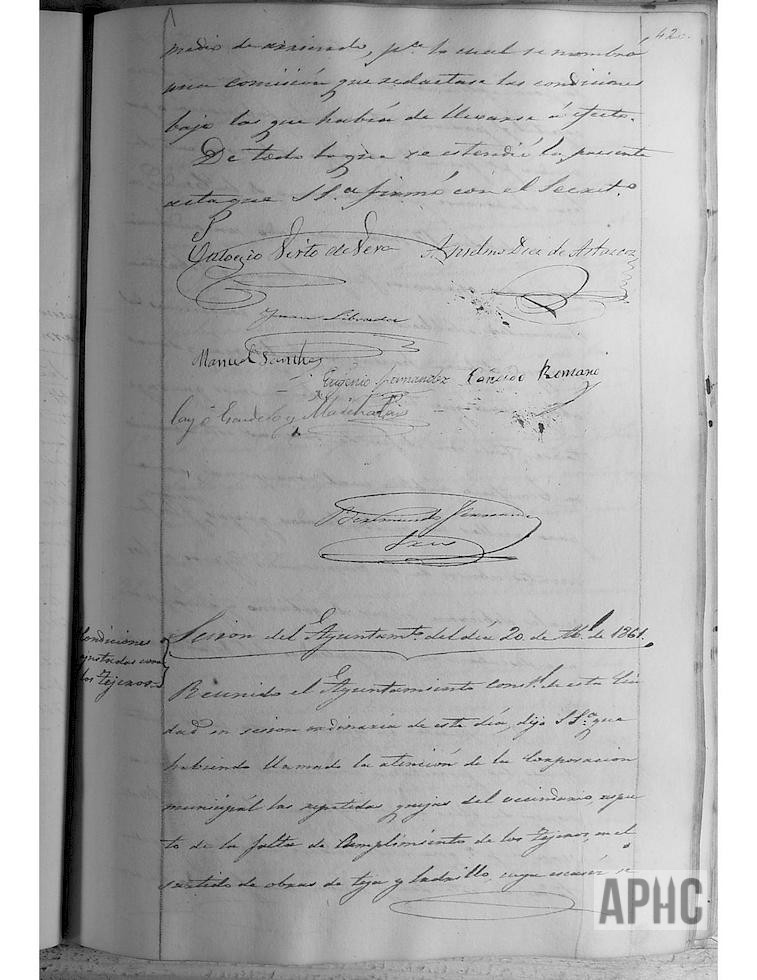 42
medio de arriendo, p.ª lo cual se nombró
una comisión que redactase las condiciones
bajo las que habían de llevarse á efecto.
De todo lo que se estendió la presente
acta que S S.ª firmó con el Secret.º
Eutoquio Virto de Vera Anselmo Diez de Artazcoz
Juan Librada
Manuel Sanchez
Eugenio Fernandez Romano
Cayo Escudero y Marichalar
Bermundo
Srio
Condiciones
ajustadas con
los Tejeros
Sesion del Ayuntam.to del dia 20 de Ab.l de 1861.
Reunido el Ayuntamiento Const.l de esta Ciu
dad en sesion ordinaria de este día, dijo S S.ª que
habiendo llamado la atención de la Corporacion
municipál las repetidas quejas del vecindario, respec
to de la falta de cumplimiento de los Tejeros, en el
surtido de obras de teja y ladrillo, cuya escaséz se
APHC